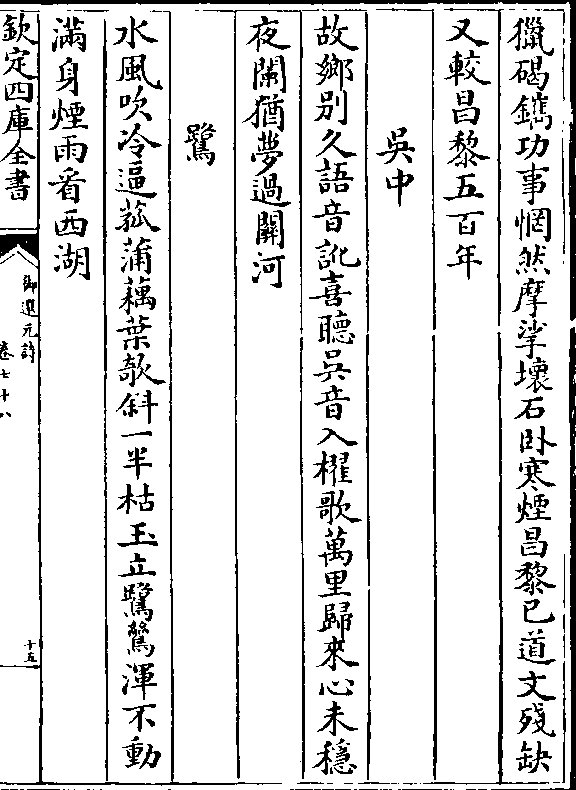 獵碣鐫功事惘然摩挲壞石卧寒煙昌黎已道文殘缺
又較昌黎五百年
吳中
故鄉别久語音訛喜聽吳音入櫂歌萬里歸來心未穩
夜闌猶夢過關河
鷺
水風吹冷逼菰蒲藕葉欹斜一半枯玉立鷺鷥渾不動
滿身煙雨看西湖
欽定四庫全書
御選元詩
卷七十八
十五